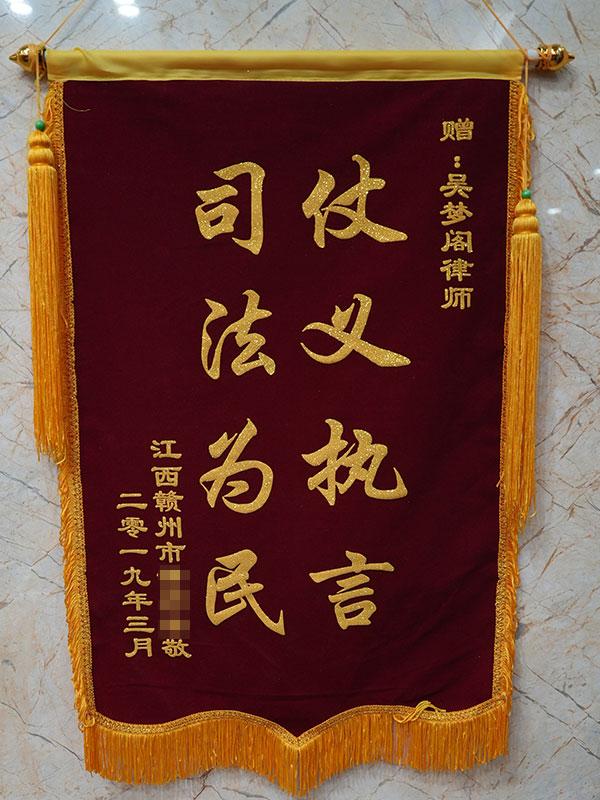 赠：吴梦阁律师
仗义执言
司法为民
江西赣州市敬
二零一九年三月